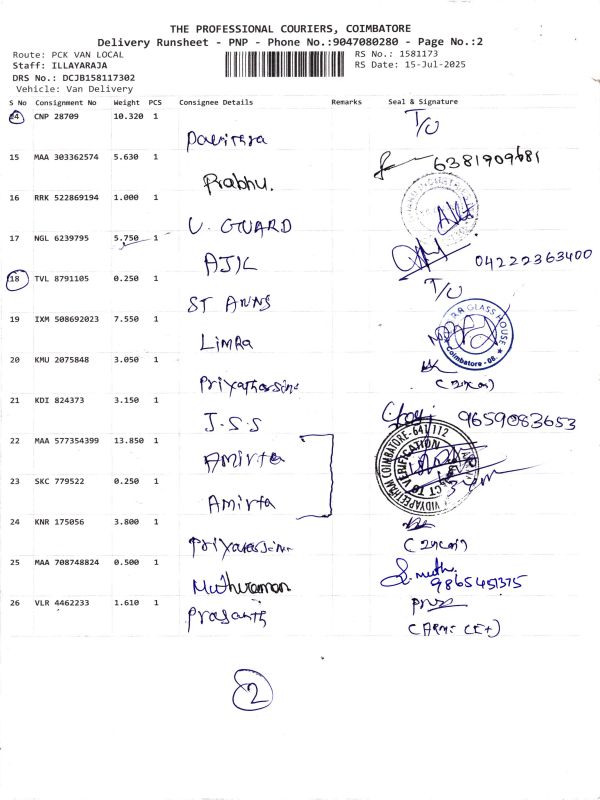 THE PROFESSIONAL COURIERS, COIMBATORE
Delivery Runsheet - PNP - Phone No.:9047080280 - Page No.:2
Route: PCK VAN LOCAL
RS No.: 1581173
Staff: ILLAYARAJA
RS Date: 15-Jul-2025
DRS No.: DCJB158117302
Vehicle: Van Delivery
S No Consignment No Weight PCS Consignee Details Remarks Seal & Signature
14 CNP 28709 10.320 1 T/O
15 MAA 303362574 5.630 1 6381909681
Prabhu.
16 RRK 522869194 1.000 1
V. GUARD
17 NGL 6239795 5.750 1 04222363400
18 TVL 8791105 0.250 1 T/O
ST ANNS
19 IXM 508692023 7.550 1 GLASS HOUSE Coimbatore
Limra
20 KMU 2075848 3.050 1
21 KDI 824373 3.150 1 9659083653
J.S.S
22 MAA 577354399 13.850 1 VIDYAPEETHAM COIMBATORE-641 112
Amirta
23 SKC 779522 0.250 1
Amirta
24 KNR 175056 3.800 1
25 MAA 708748824 0.500 1 9865451375
Muthuraman
26 VLR 4462233 1.610 1
Prasanth
2